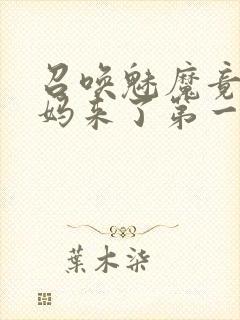 召唤魅魔竟
妈来了第一
葉木柒